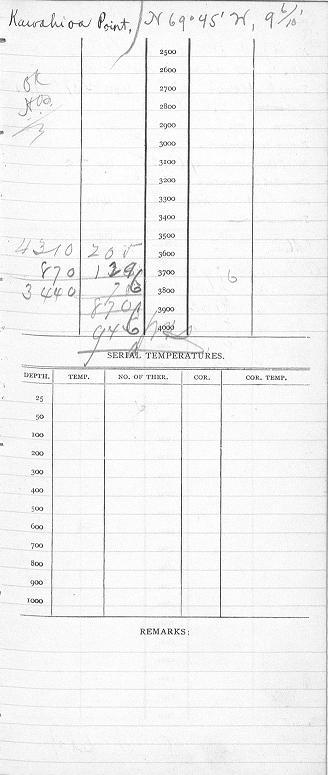 Kawahioa Point, N 69° 45' W, 9 6/10'
2500
2600
OK
2700
2800
2900
3000
3100
3200
3300
3400
3500
4310 205 3600
870 129 3700 6
3440 76 3800
870 3900
946 4000
SERIAL TEMPERATURES.
DEPTH. TEMP. NO. OF THER. COR. COR. TEMP.
25
50
100
200
300
400
500
600
700
800
900
1000
REMARKS: